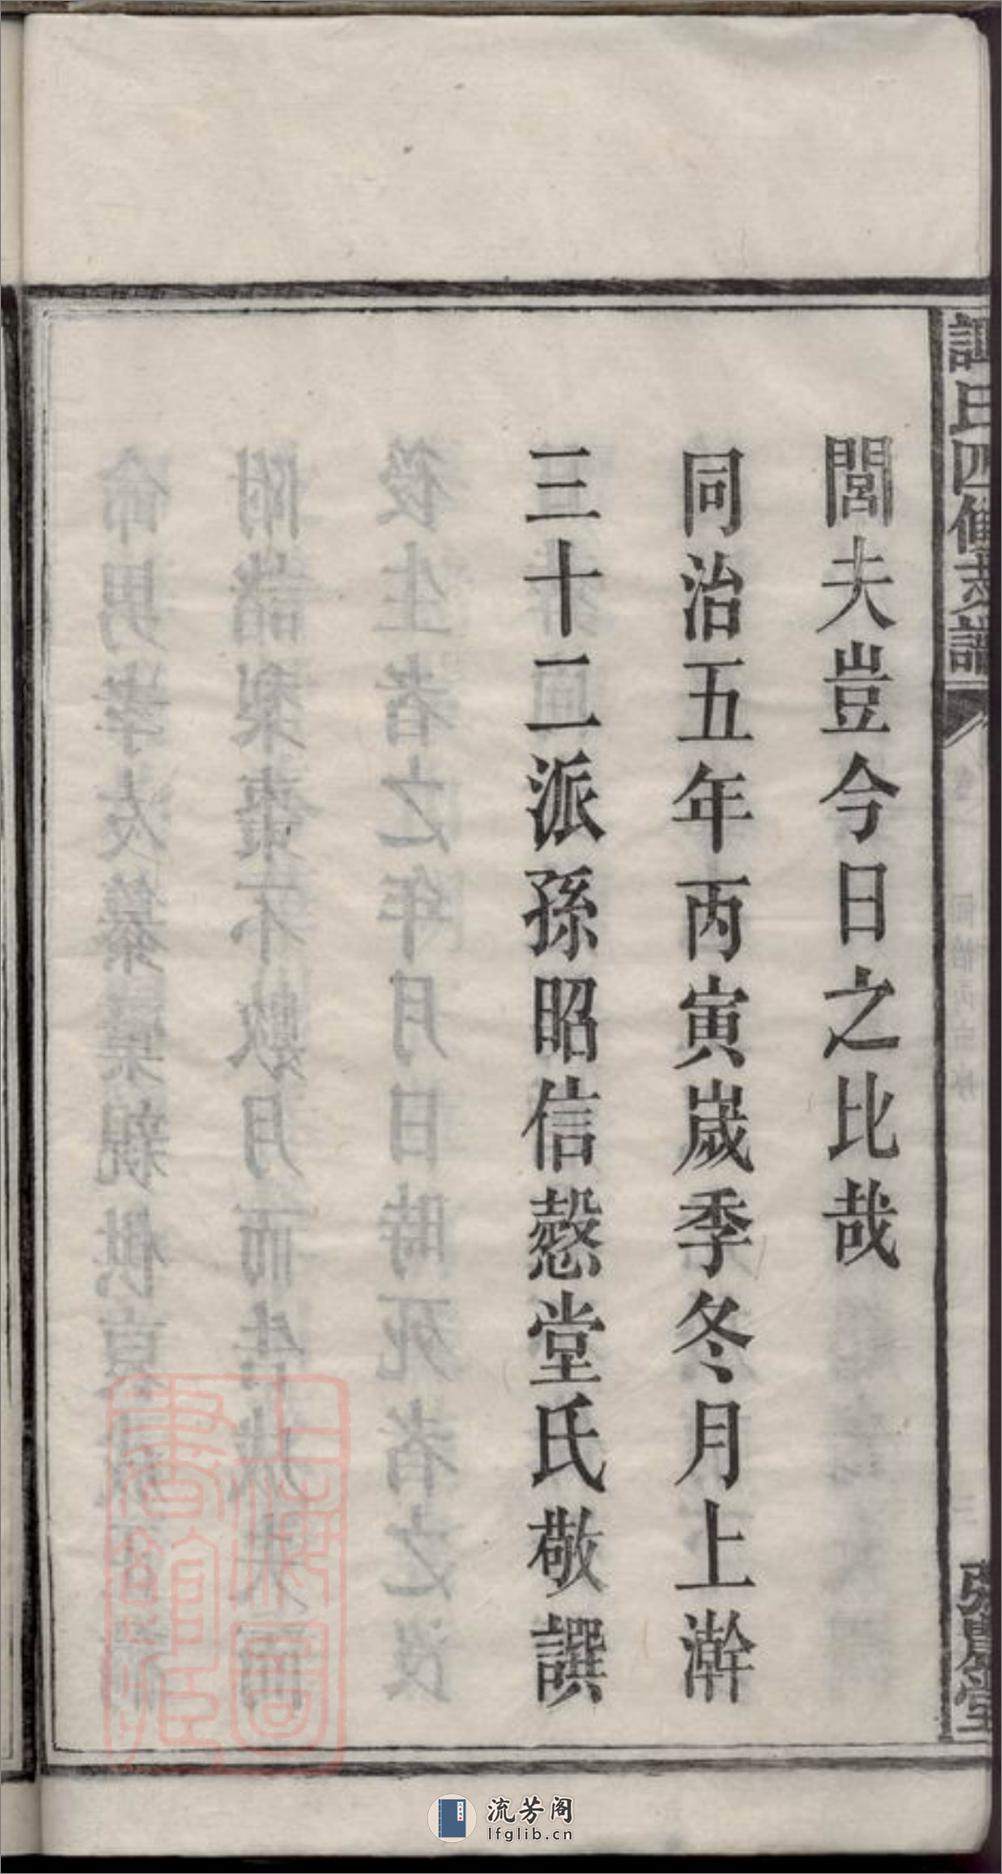 閭夫豈今日之比哉
同治五年丙寅歲季冬月上澣
三十二派孫昭信慤堂氏敬譔
氏四修支譜
堂
上海圖書館藏
流芳阁
lfglib.cn